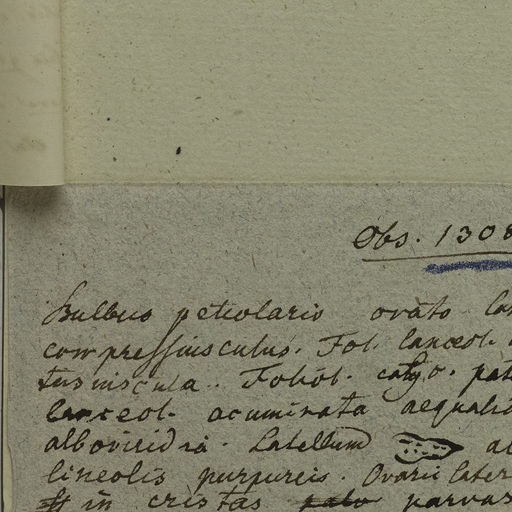 Obs. 1308
Bulbus petiolaris ovato lan
compressiusculus. Fol. lanceol.
tusiuscula. Foliol. calyc. pat
lanceol. acuminata aequalia
alboviridia. Labellum
lineolis purpureis. Ovarii later
in cristas parvas